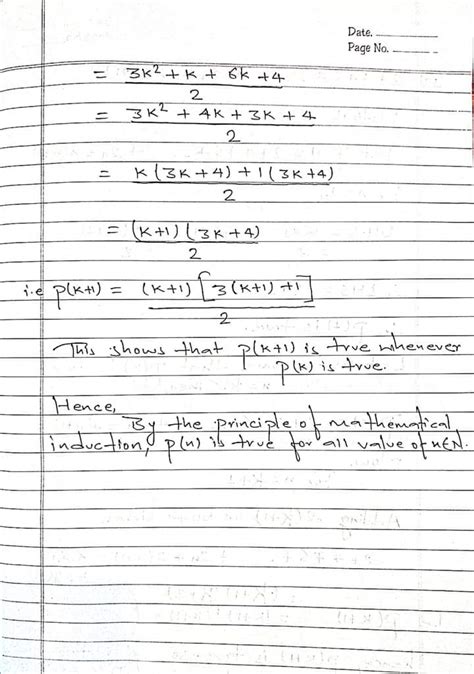 Date.
Page No.
= 3k² + k + 6k + 4
2
= 3k² + 4k + 3k + 4
2
= k(3k+4) + 1(3k+4)
2
= (k+1)(3k+4)
2
i.e p(k+1) = (k+1)[3(k+1)+1]
2
This shows that p(k+1) is true whenever
p(k) is true.
Hence,
By the principle of mathematical
induction, p(n) is true for all value of n∈N.